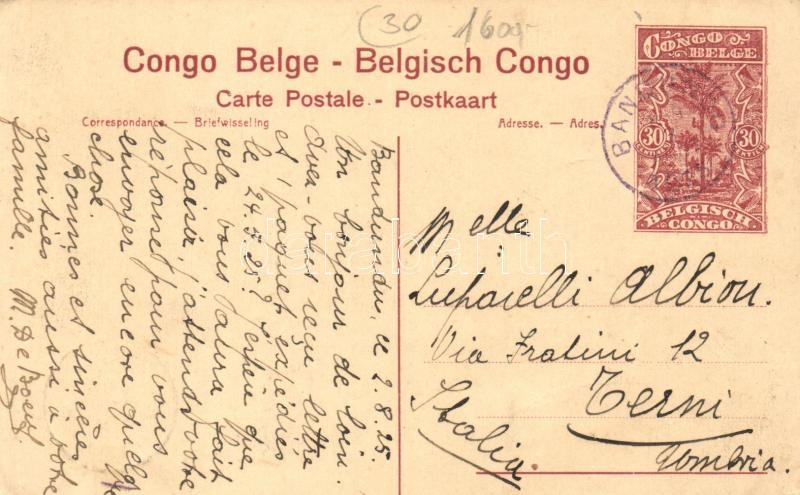 (30
1600,-
Congo Belge - Belgisch Congo
Carte Postale - Postkaart
Correspondance. — Briefwisseling
Adresse. — Adres.
CONGO
BELGE
30
30
CENTIMES
CENTIEM
BELGISCH
CONGO
BAN
Bandundu, le 2.8.25.
Un bonjour de loin.
Avez-vous reçu lettre
et paquet expédiés
le 24.5.25? J'espère que
cela vous aura fait
plaisir, j'attends votre
réponse pour vous
envoyer encore quelq
chose.
Bonnes et sincères
amitiés aussi à votre
famille.
M. De Boeck
Melle
Luparelli Albion.
Via Fratini 12
Terni
Italia
Gombria.
darabanth